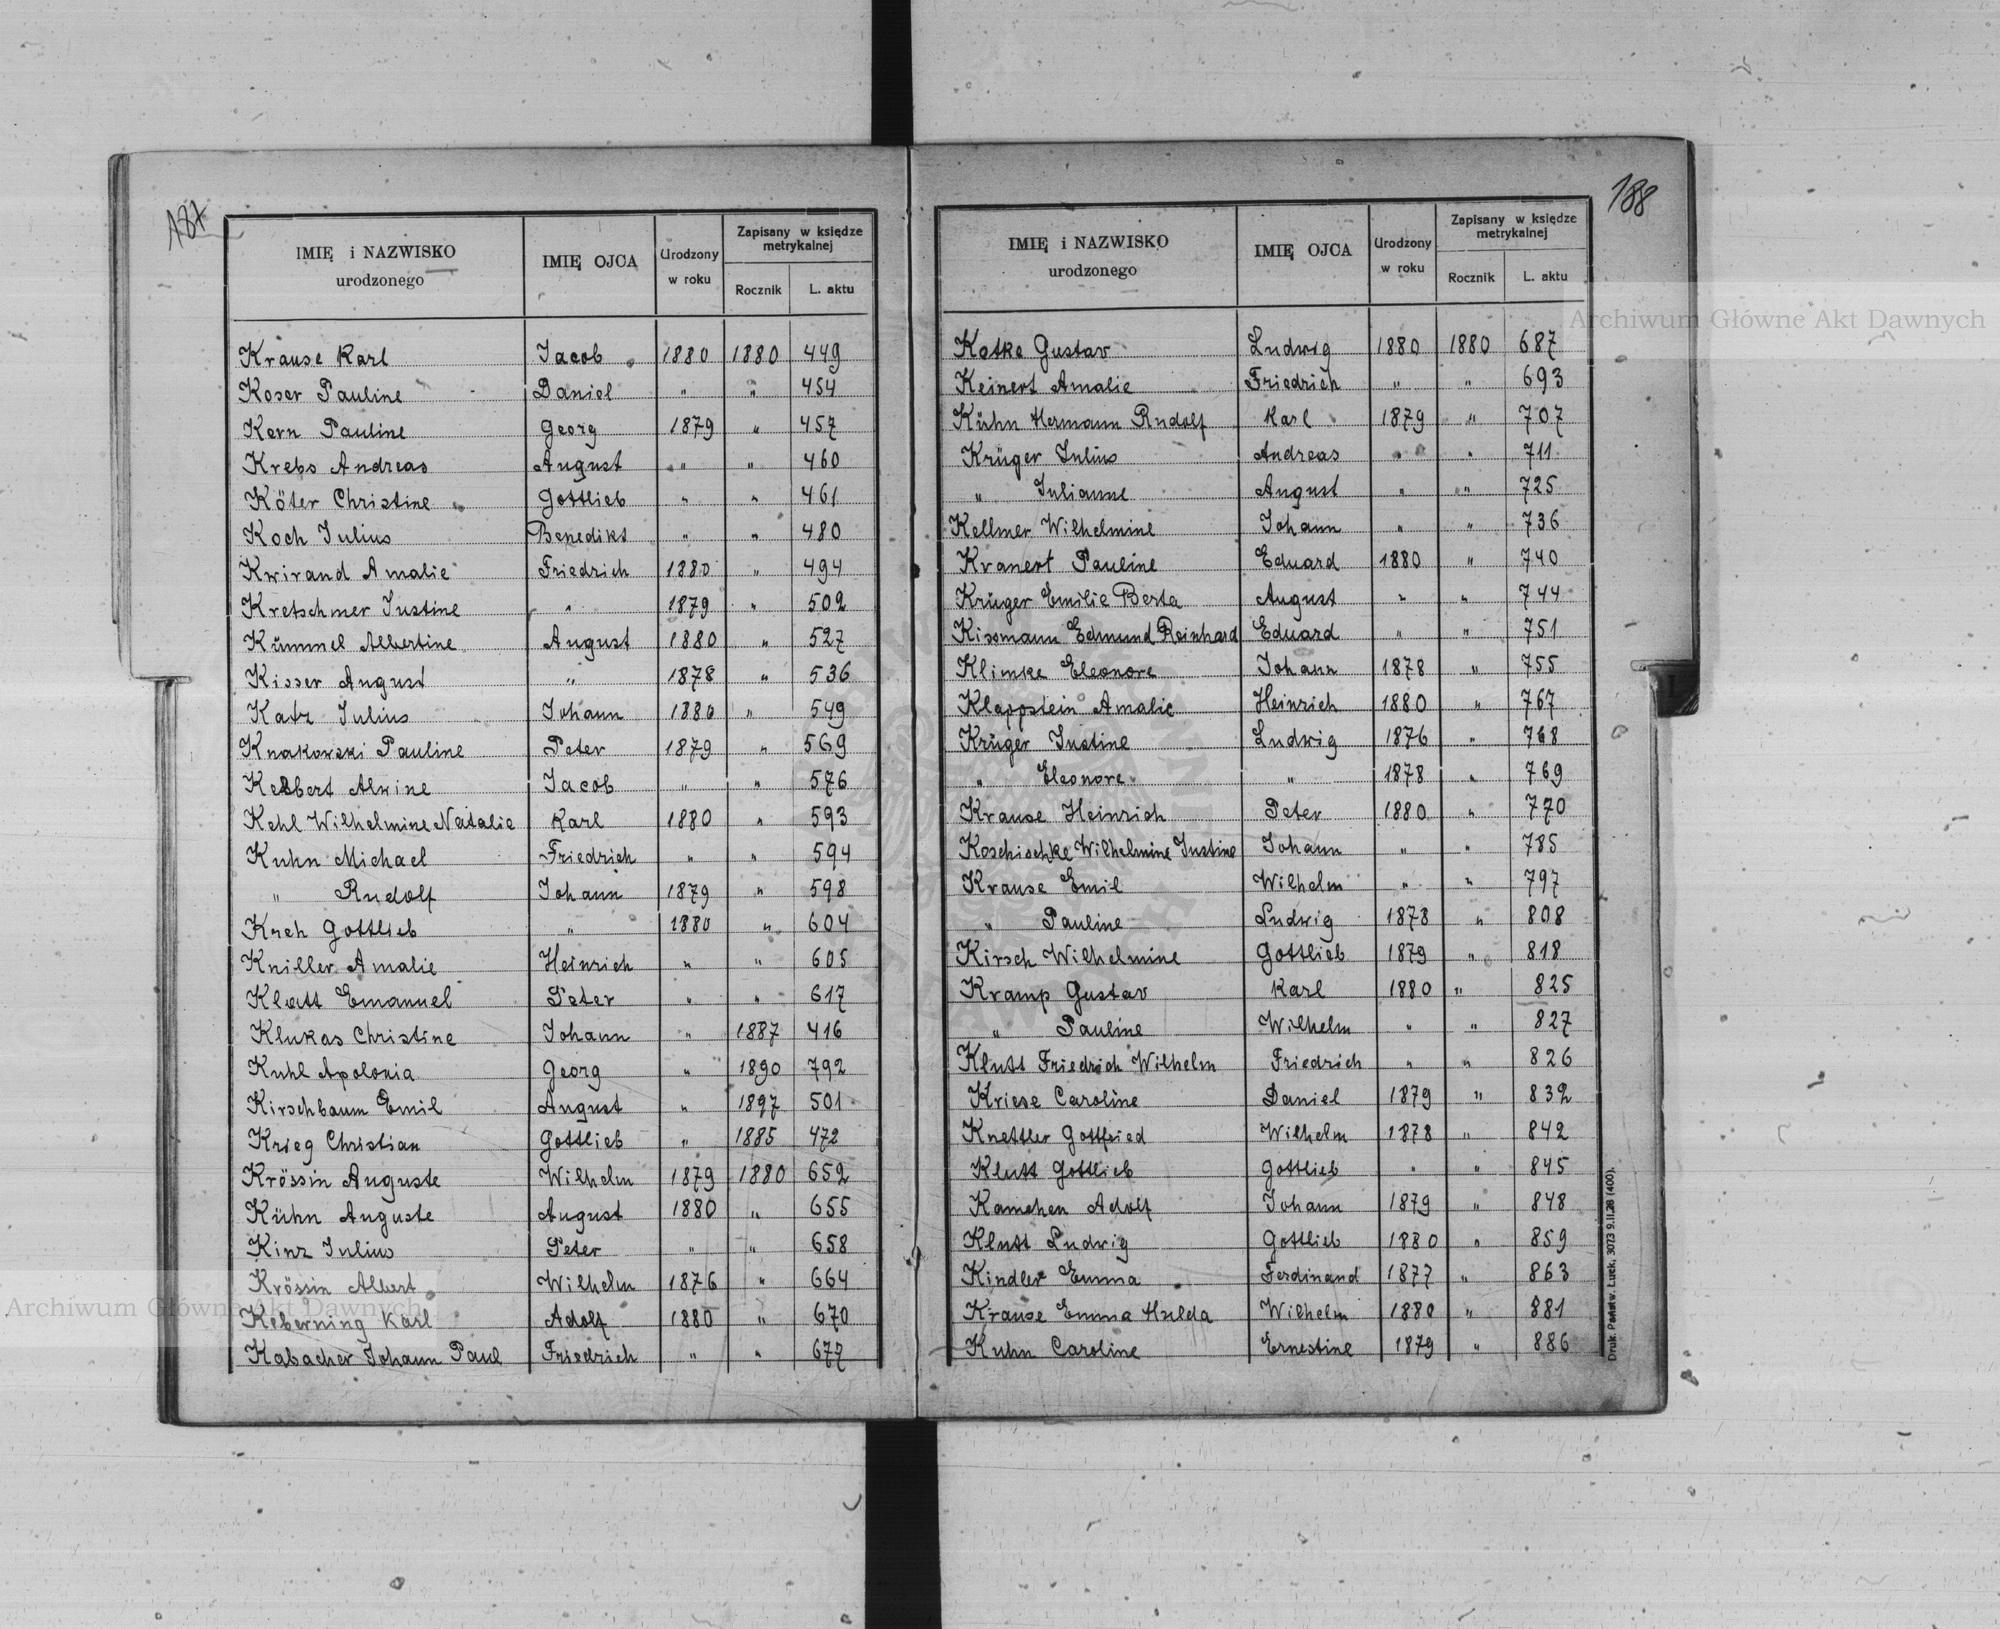 187
IMIĘ i NAZWISKO urodzonego IMIĘ OJCA Urodzony w roku Zapisany w księdze metrykalnej Rocznik L. aktu
Krause Karl Jacob 1880 1880 449
Koser Pauline Daniel " " 454
Kern Pauline Georg 1879 " 457
Krebs Andreas August " " 460
Köter Christine Gottlieb " " 461
Koch Julius Benedikt " " 480
Kwirand Amalie Friedrich 1880 " 494
Kretschmer Justine " 1879 " 502
Kümmel Albertine August 1880 " 527
Kisser August " 1878 " 536
Katz Julius Johann 1880 " 549
Knakowski Pauline Peter 1879 " 569
Kebbert Alwine Jacob " " 576
Kehl Wilhelmine Natalie Karl 1880 " 593
Kuhn Michael Friedrich " " 594
" Rudolf Johann 1879 " 598
Krch Gottlieb " 1880 " 604
Kniller Amalie Heinrich " " 605
Klatt Emanuel Peter " " 617
Klukas Christine Johann " 1887 416
Kuhl Apolonia Georg " 1890 792
Kirschbaum Emil August " 1897 501
Krieg Christian Gottlieb " 1885 472
Krössin Auguste Wilhelm 1879 1880 652
Kühn Auguste August 1880 " 655
Kinz Julius Peter " " 658
Krössin Albert Wilhelm 1876 " 664
Keberning Karl Adolf 1880 " 670
Kabacher Johann Paul Friedrich " " 677
188
IMIĘ i NAZWISKO urodzonego IMIĘ OJCA Urodzony w roku Zapisany w księdze metrykalnej Rocznik L. aktu
Kotke Gustav Ludwig 1880 1880 687
Keinert Amalie Friedrich " " 693
Kühn Hermann Rudolf Karl 1879 " 707
Krüger Julius Andreas " " 711
" Julianne August " " 725
Kellmer Wilhelmine Johann " " 736
Kranert Pauline Eduard 1880 " 740
Krüger Emilie Berta August " " 744
Kissmann Edmund Reinhard Eduard " " 751
Klimke Eleonore Johann 1878 " 755
Klappstein Amalie Heinrich 1880 " 767
Krüger Justine Ludwig 1876 " 768
" Eleonore " 1878 " 769
Krause Heinrich Peter 1880 " 770
Koschischke Wilhelmine Justine Johann " " 785
Krause Emil Wilhelm " " 797
" Pauline Ludwig 1878 " 808
Kirsch Wilhelmine Gottlieb 1879 " 818
Kramp Gustav Karl 1880 " 825
" Pauline Wilhelm " " 827
Klutt Friedrich Wilhelm Friedrich " " 826
Kriese Caroline Daniel 1879 " 832
Knettler Gottfried Wilhelm 1878 " 842
Klutt Gottlieb Gottlieb " " 845
Kamchen Adolf Johann 1879 " 848
Klutt Ludwig Gottlieb 1880 " 859
Kindler Emma Ferdinand 1877 " 863
Krause Emma Hulda Wilhelm 1880 " 881
Kuhn Caroline Ernestine 1879 " 886
Druk. Państw. Łuck. 3073 9.II.28 (400).
Archiwum Główne Akt Dawnych
Archiwum Główne Akt Dawnych